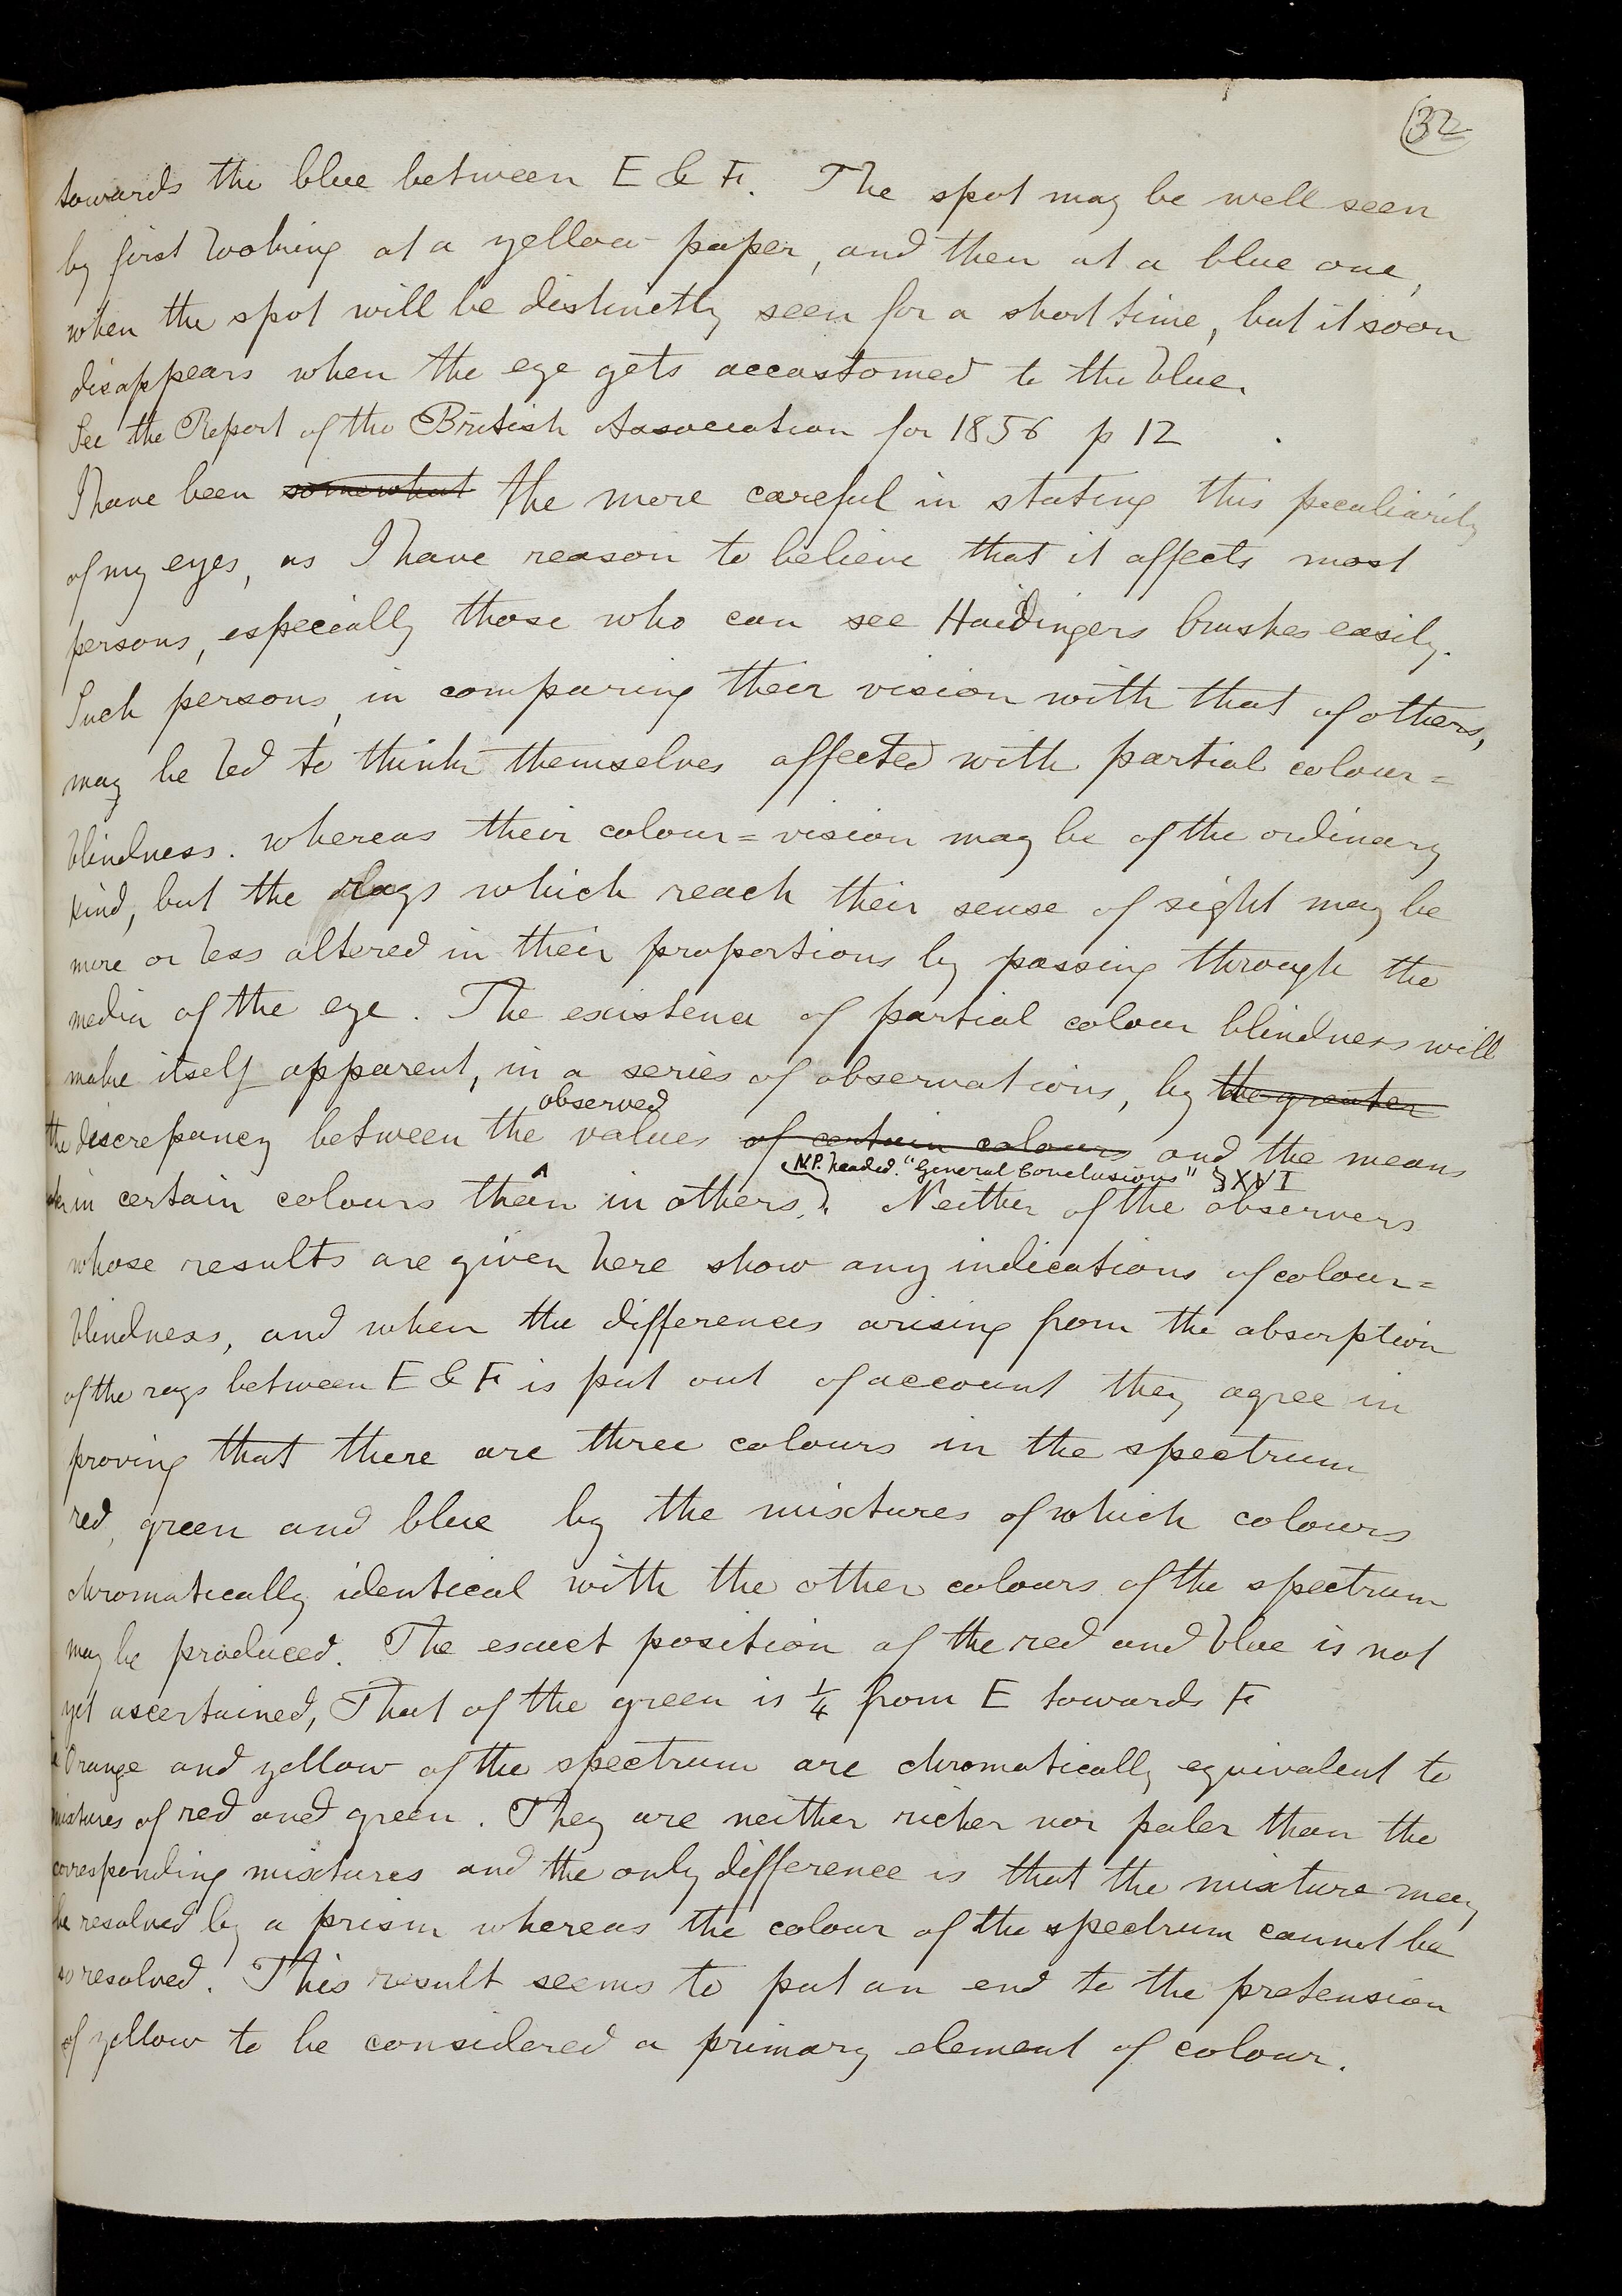 32
towards the blue between E & F. The spot may be well seen
by first looking at a yellow paper, and then at a blue one,
when the spot will be distinctly seen for a short time, but it soon
disappears when the eye gets accustomed to the blue.
See the Report of the British Association for 1856 p 12
I have been somewhat the more careful in stating this peculiarity
of my eyes, as I have reason to believe that it affects most
persons, especially those who can see Haidingers brushes easily.
Such persons, in comparing their vision with that of others,
may be led to think themselves affected with partial colour=
blindness. whereas their colour=vision may be of the ordinary
kind, but the rays which reach their sense of sight may be
more or less altered in their proportions by passing through the
media of the eye. The existence of partial colour blindness will
make itself apparent, in a series of observations, by the greater
observed
the discrepancy between the values of certain colours and the means
N.P. headed. "General Conclusions" § XVI
in certain colours than in others. Neither of the observers
whose results are given here show any indications of colour=
blindness, and when the differences arising from the absorption
of the rays between E & F is put out of account they agree in
proving that there are three colours in the spectrum
red, green and blue by the mixtures of which colours
chromatically identical with the other colours of the spectrum
may be produced. The exact position of the red and blue is not
yet ascertained, That of the green is ¼ from E towards F
Orange and yellow of the spectrum are chromatically equivalent to
mixtures of red and green. They are neither richer nor paler than the
corresponding mixtures and the only difference is that the mixture may
be resolved by a prism whereas the colour of the spectrum cannot be
so resolved. This result seems to put an end to the pretension
of yellow to be considered a primary element of colour.